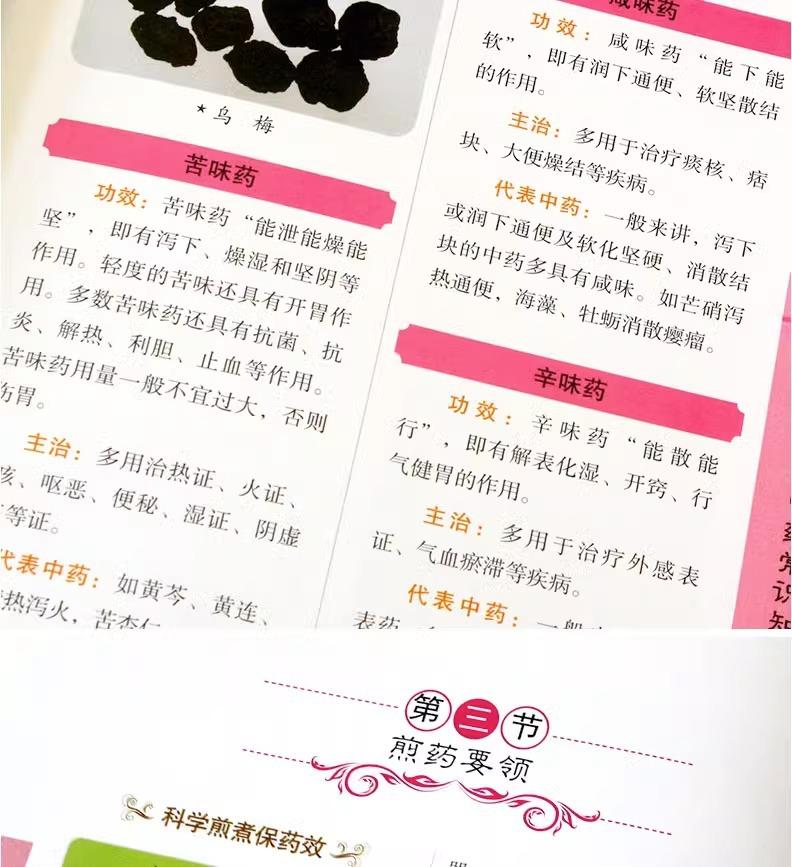 ★乌 梅
苦味药
功效：苦味药“能泄能燥能
坚”，即有泻下、燥湿和坚阴等
作用。轻度的苦味还具有开胃作
用。多数苦味药还具有抗菌、抗
炎、解热、利胆、止血等作用。
苦味药用量一般不宜过大，否则
伤胃。
主治：多用治热证、火证、
咳、呕恶、便秘、湿证、阴虚
等证。
代表中药：如黄芩、黄连、
热泻火，苦杏仁
咸味药
功效：咸味药“能下能
软”，即有润下通便、软坚散结
的作用。
主治：多用于治疗痰核、痞
块、大便燥结等疾病。
代表中药：一般来讲，泻下
或润下通便及软化坚硬、消散结
块的中药多具有咸味。如芒硝泻
热通便，海藻、牡蛎消散瘿瘤。
辛味药
功效：辛味药“能散能
行”，即有解表化湿、开窍、行
气健胃的作用。
主治：多用于治疗外感表
证、气血瘀滞等疾病。
代表中药：一般
表药
药
常
识
知
第三节
煎药要领
科学煎煮保药效